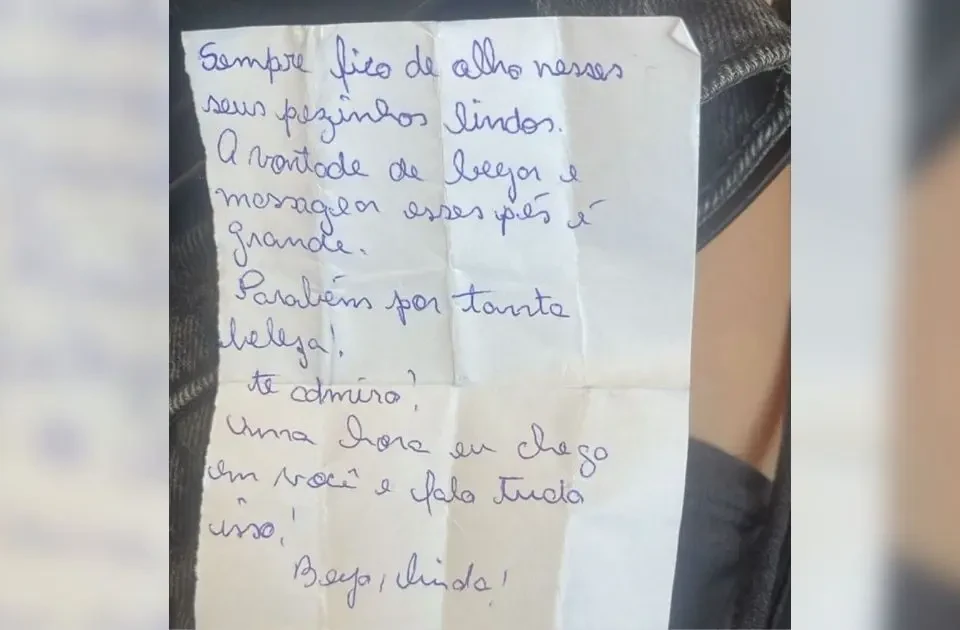 Sempre fico de olho nesses
seus pezinhos lindos.
A vontade de beijar e
massagear esses pés é
grande.
Parabéns por tanta
beleza!
te admiro!
Uma hora eu chego
em você e falo tudo
isso!
Beijo, linda!